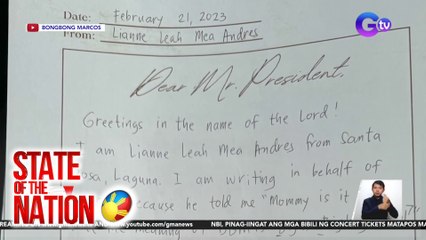 BONGBONG MARCOS
GTV
Date: February 21, 2023
From: Lianne Leah Mea Andres
Dear Mr. President,
Greetings in the name of the Lord!
I am Lianne Leah Mea Andres from Santa
Rosa, Laguna. I am writing in behalf of
because he told me "Mommy is it
STATE
OF THE
NATION
youtube.com/gmanews
NBI, PINAG-IINGAT ANG MGA BIBILI NG CONCERT TICKETS MATAPOS MA